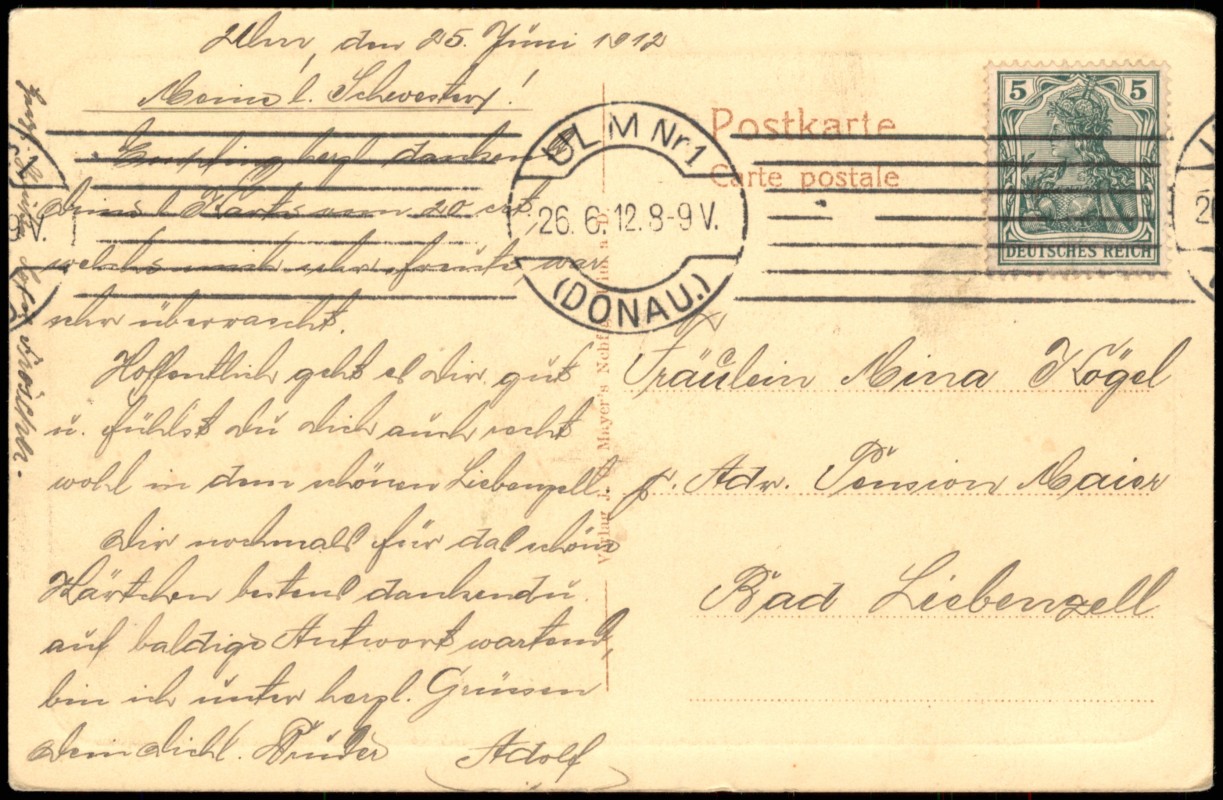 Ulm, den 25. Juni 1912
Meine l. Schwester!
Empfing herzl. dankend
deine l. Karte vom 20. crt,
welche mich sehr freute, war
sehr überrascht.
Hoffentlich geht es dir gut
u. fühlst du dich auch recht
wohl in dem schönen Liebenzell.
dir nochmals für das schöne
Kärtchen bestens dankend u.
auf baldige Antwort wartend,
bin ich unter herzl. Grüssen
dein dichl. Bruder Adolf
Postkarte
Carte postale
ULM Nr 1
26. 6. 12. 8-9 V.
(DONAU.)
5 5
DEUTSCHES REICH
Fräulein Mina Kögel
p. Adr. Pension Maier
Bad Liebenzell
Verlag J. Mayer's